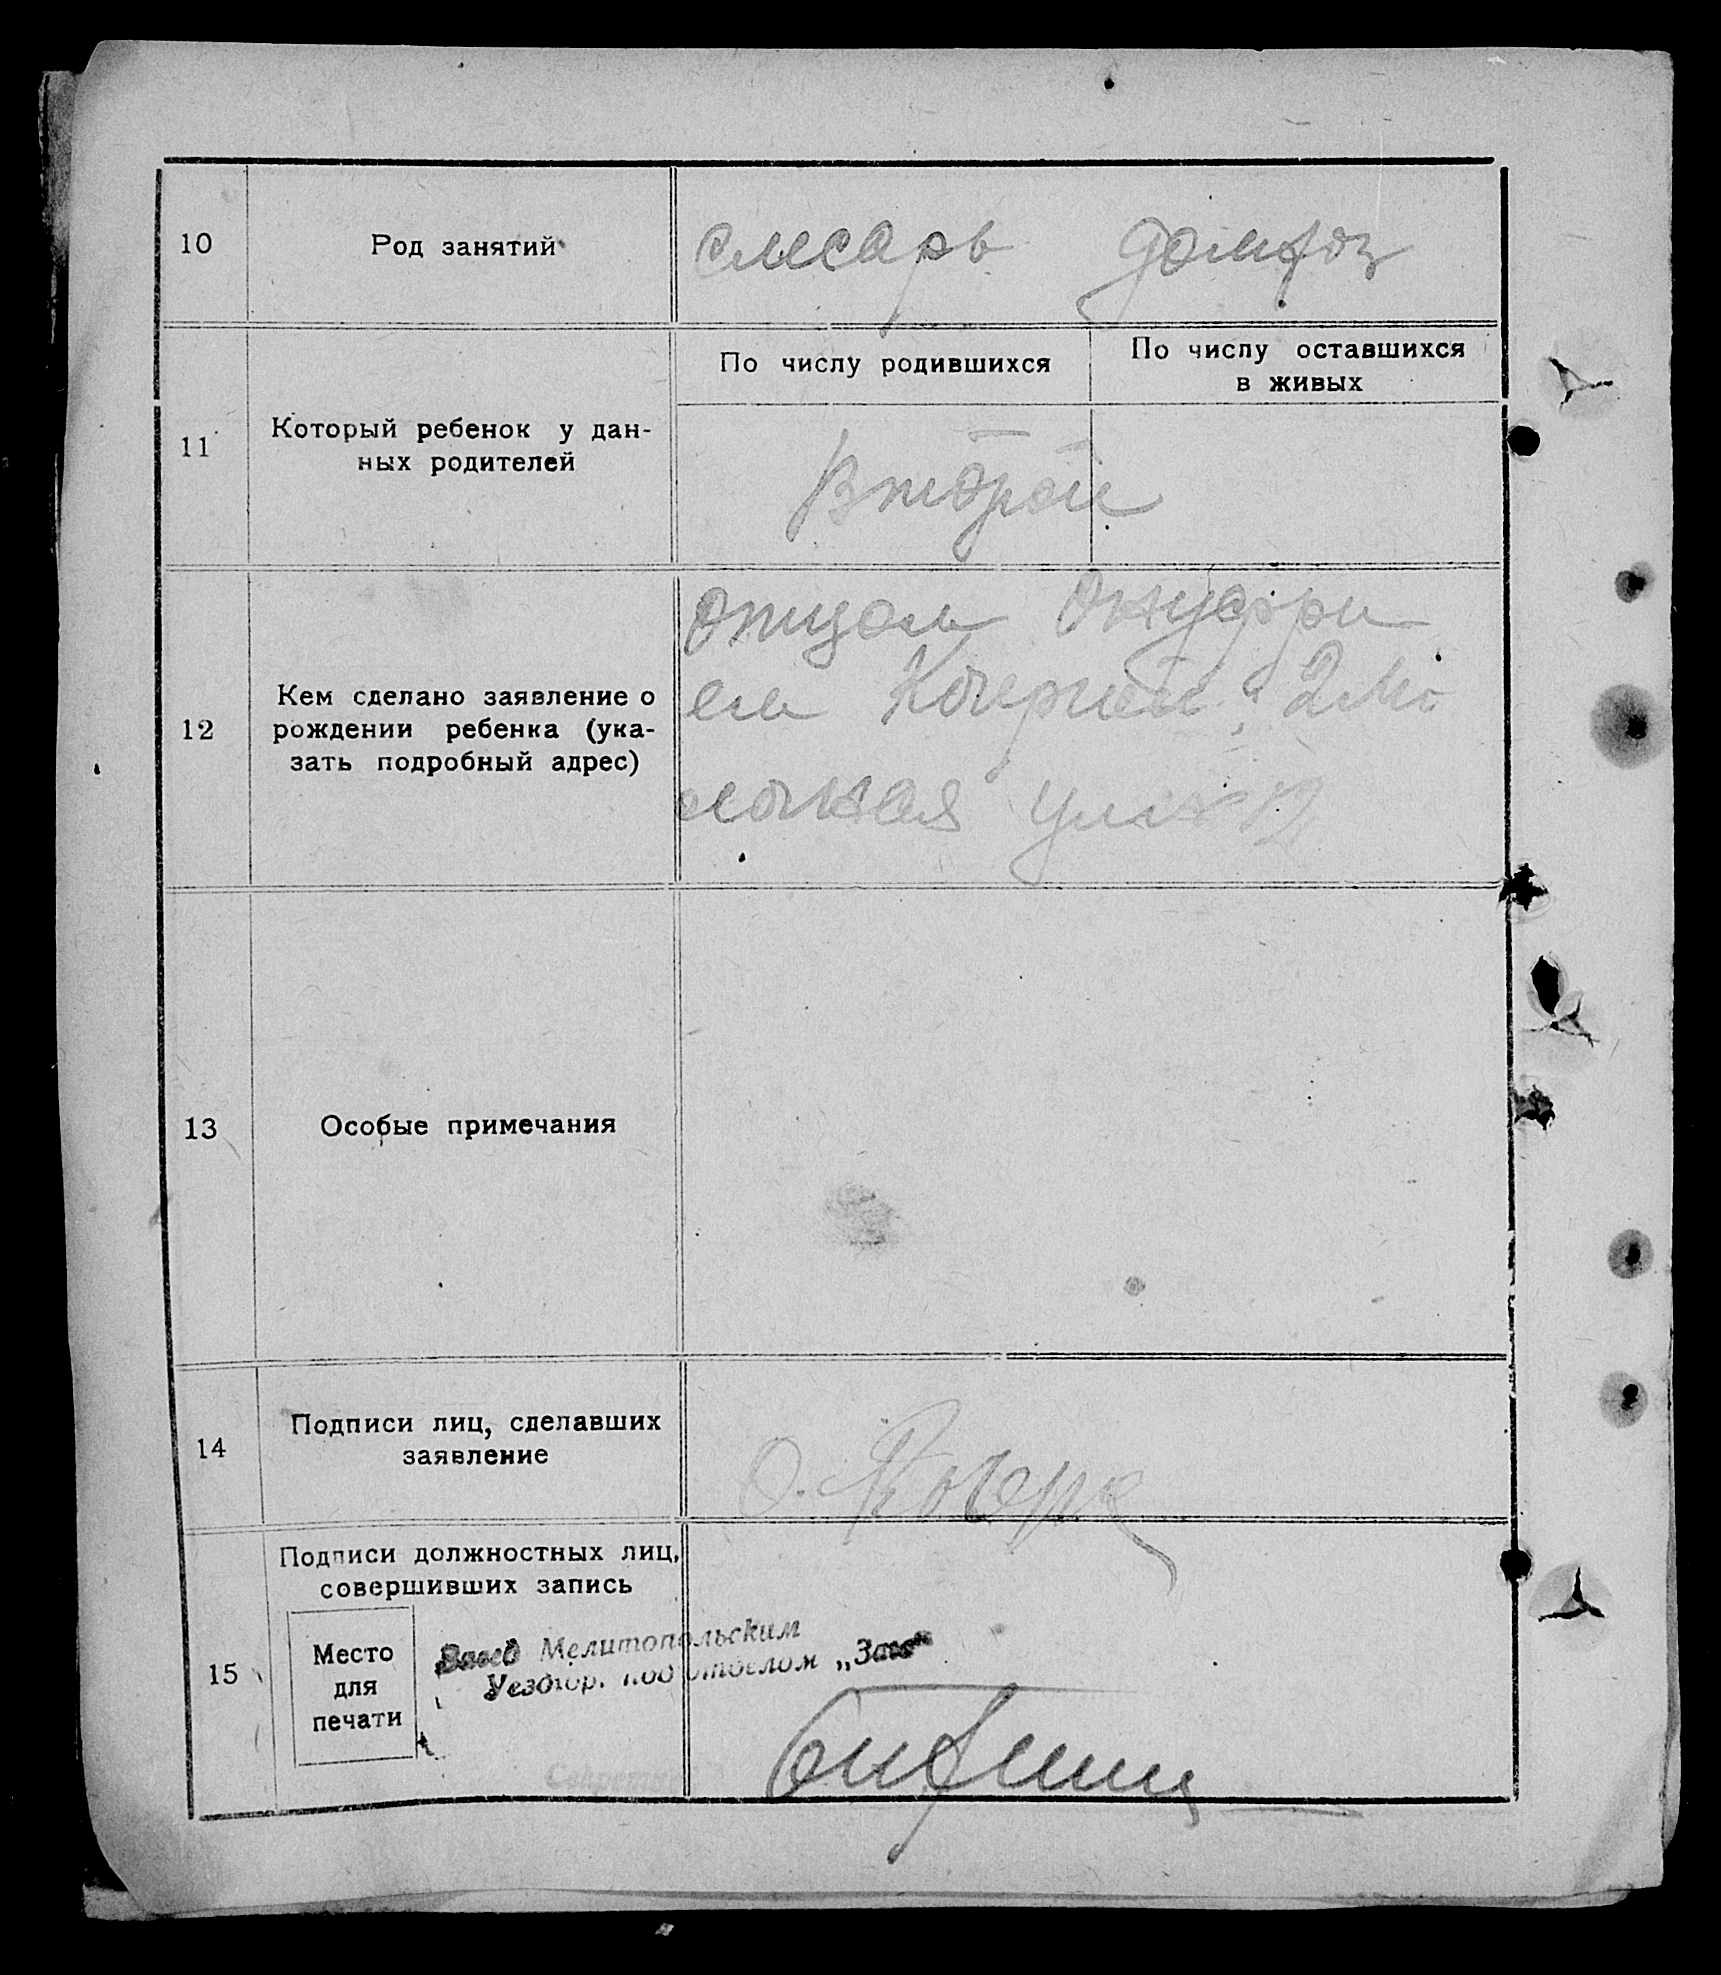 10
Род занятий
слесарь домхоз
11
Который ребенок у дан-
ных родителей
По числу родившихся
По числу оставшихся
в живых
Второй
12
Кем сделано заявление о
рождении ребенка (ука-
зать подробный адрес)
отцом Онуфри
ем
ул
13
Особые примечания
14
Подписи лиц, сделавших
заявление
О.
15
Подписи должностных лиц,
совершивших запись
Место
для
печати
Мелитопольским
Уездгор. подотделом „Загс“
Секретарь